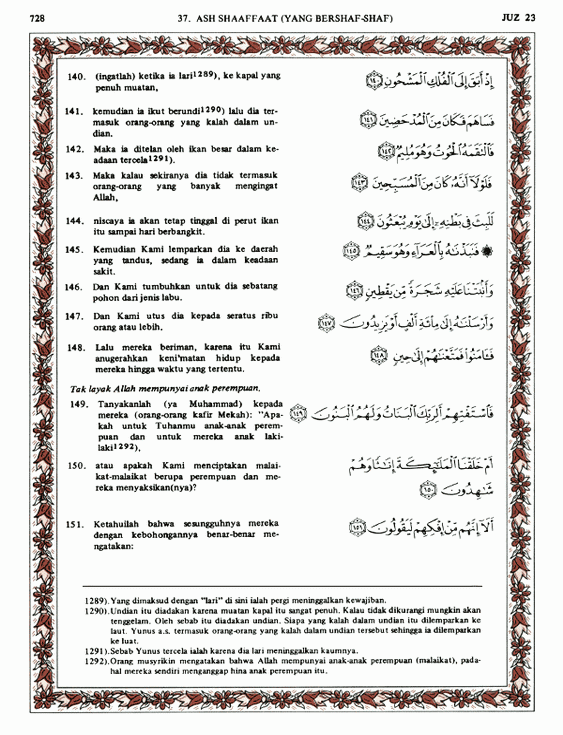 728
37. ASH SHAAFFAAT (YANG BERSHAF-SHAF)
JUZ 23
140. (ingatlah) ketika ia lari1289), ke kapal yang
penuh muatan,
إِذْ أَبَقَ إِلَى ٱلْفُلْكِ ٱلْمَشْحُونِ ١٤٠
141. kemudian ia ikut berundi1290) lalu dia ter-
masuk orang-orang yang kalah dalam un-
dian.
فَسَاهَمَ فَكَانَ مِنَ ٱلْمُدْحَضِينَ ١٤١
142. Maka ia ditelan oleh ikan besar dalam ke-
adaan tercela1291).
فَٱلْتَقَمَهُ ٱلْحُوتُ وَهُوَ مُلِيمٌ ١٤٢
143. Maka kalau sekiranya dia tidak termasuk
orang-orang yang banyak mengingat
Allah,
فَلَوْلَآ أَنَّهُۥ كَانَ مِنَ ٱلْمُسَبِّحِينَ ١٤٣
144. niscaya ia akan tetap tinggal di perut ikan
itu sampai hari berbangkit.
لَلَبِثَ فِى بَطْنِهِۦٓ إِلَىٰ يَوْمِ يُبْعَثُونَ ١٤٤
145. Kemudian Kami lemparkan dia ke daerah
yang tandus, sedang ia dalam keadaan
sakit.
۞ فَنَبَذْنَٰهُ بِٱلْعَرَآءِ وَهُوَ سَقِيمٌ ١٤٥
146. Dan Kami tumbuhkan untuk dia sebatang
pohon dari jenis labu.
وَأَنۢبَتْنَا عَلَيْهِ شَجَرَةً مِّن يَقْطِينٍ ١٤٦
147. Dan Kami utus dia kepada seratus ribu
orang atau lebih.
وَأَرْسَلْنَٰهُ إِلَىٰ مِا۟ئَةِ أَلْفٍ أَوْ يَزِيدُونَ ١٤٧
148. Lalu mereka beriman, karena itu Kami
anugerahkan keni'matan hidup kepada
mereka hingga waktu yang tertentu.
فَـَٔامَنُوا۟ فَمَتَّعْنَٰهُمْ إِلَىٰ حِينٍ ١٤٨
Tak layak Allah mempunyai anak perempuan.
149. Tanyakanlah (ya Muhammad) kepada
mereka (orang-orang kafir Mekah): "Apa-
kah untuk Tuhanmu anak-anak perem-
puan dan untuk mereka anak laki-
laki1292),
فَٱسْتَفْتِهِمْ أَلِرَبِّكَ ٱلْبَنَاتُ وَلَهُمُ ٱلْبَنُونَ ١٤٩
150. atau apakah Kami menciptakan malai-
kat-malaikat berupa perempuan dan me-
reka menyaksikan(nya)?
أَمْ خَلَقْنَا ٱلْمَلَٰٓئِكَةَ إِنَٰثًا وَهُمْ
شَٰهِدُونَ ١٥٠
151. Ketahuilah bahwa sesungguhnya mereka
dengan kebohongannya benar-benar me-
ngatakan:
أَلَآ إِنَّهُم مِّنْ إِفْكِهِمْ لَيَقُولُونَ ١٥١
1289). Yang dimaksud dengan "lari" di sini ialah pergi meninggalkan kewajiban.
1290). Undian itu diadakan karena muatan kapal itu sangat penuh. Kalau tidak dikurangi mungkin akan
tenggelam. Oleh sebab itu diadakan undian. Siapa yang kalah dalam undian itu dilemparkan ke
laut. Yunus a.s. termasuk orang-orang yang kalah dalam undian tersebut sehingga ia dilemparkan
ke luat.
1291). Sebab Yunus tercela ialah karena dia lari meninggalkan kaumnya.
1292). Orang musyrikin mengatakan bahwa Allah mempunyai anak-anak perempuan (malaikat), pada-
hal mereka sendiri menganggap hina anak perempuan itu.